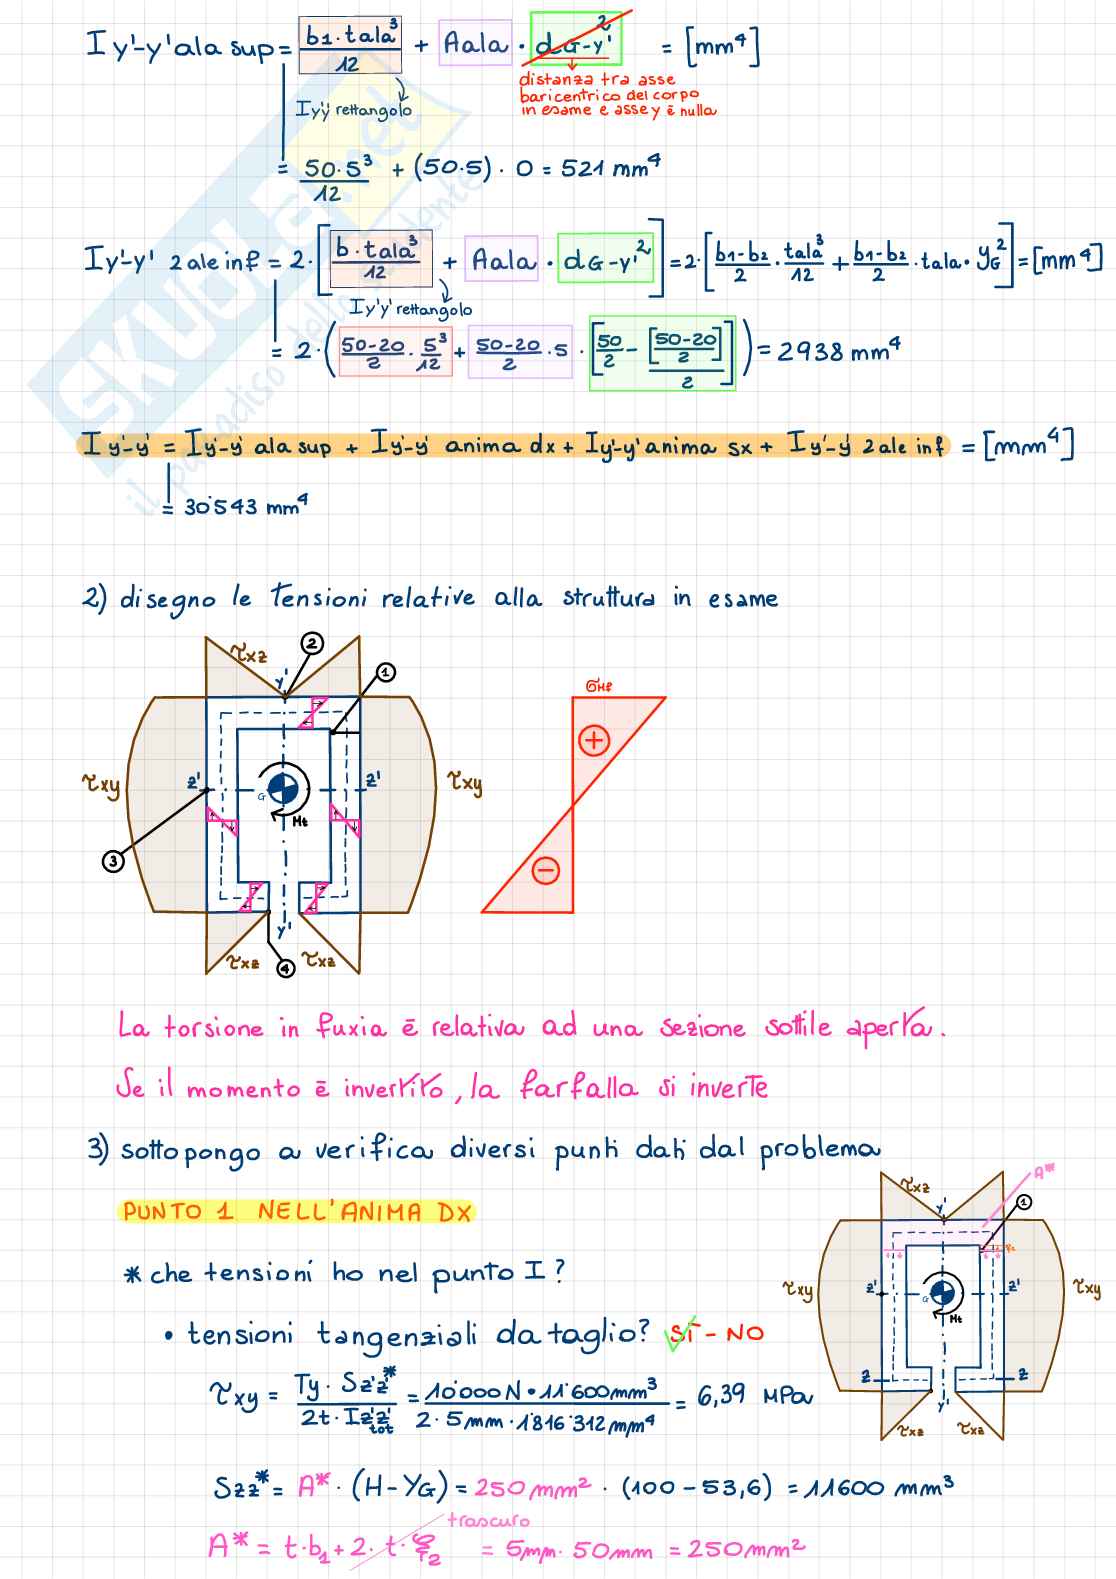 I y'-y' ala sup = b1 · tala³ / 12 + Aala · dG-y'² = [mm⁴]
Iy'y' rettangolo
distanza tra asse
baricentrico del corpo
in esame e asse y è nulla
= 50·5³ / 12 + (50·5) · 0 = 521 mm⁴
Iy'-y' 2 ale inf = 2·[b · tala³ / 12 + Aala · dG-y'²] = 2·[b1-b2 / 2 · tala³ / 12 + b1-b2 / 2 · tala · yG²] = [mm⁴]
Iy'y' rettangolo
= 2·(50-20 / 2 · 5³ / 12 + 50-20 / 2 · 5 · [50 / 2 - [50-20 / 2] / 2]) = 2938 mm⁴
Iy'-y' = Iy'-y' ala sup + Iy'-y' anima dx + Iy'-y' anima sx + Iy'-y' 2 ale inf = [mm⁴]
= 30'543 mm⁴
SKUOLA.net
il paradiso dello studente
2) disegno le tensioni relative alla struttura in esame
τxz
2
1
y'
σMf
+
τxy
z'
G
z'
τxy
Mt
3
−
y'
τxz
4
τxz
La torsione in fuxia è relativa ad una sezione sottile aperta.
Se il momento è invertito, la farfalla si inverte
3) sottopongo a verifica diversi punti dati dal problema
PUNTO 1 NELL'ANIMA DX
A*
τxz
y'
1
* che tensioni ho nel punto I?
τxy
z'
G
z'
τxy
Mt
• tensioni tangenziali da taglio? SÌ - NO
z
z
y'
τxz
τxz
τxy = Ty · Sz'z'* / 2t · Iz'z' tot = 10'000 N · 11'600 mm³ / 2 · 5 mm · 1'816'312 mm⁴ = 6,39 MPa
Szz* = A* · (H - YG) = 250 mm² · (100 - 53,6) = 11600 mm³
trascuro
A* = t·b1 + 2· t · ξ2 = 5mm · 50mm = 250mm²